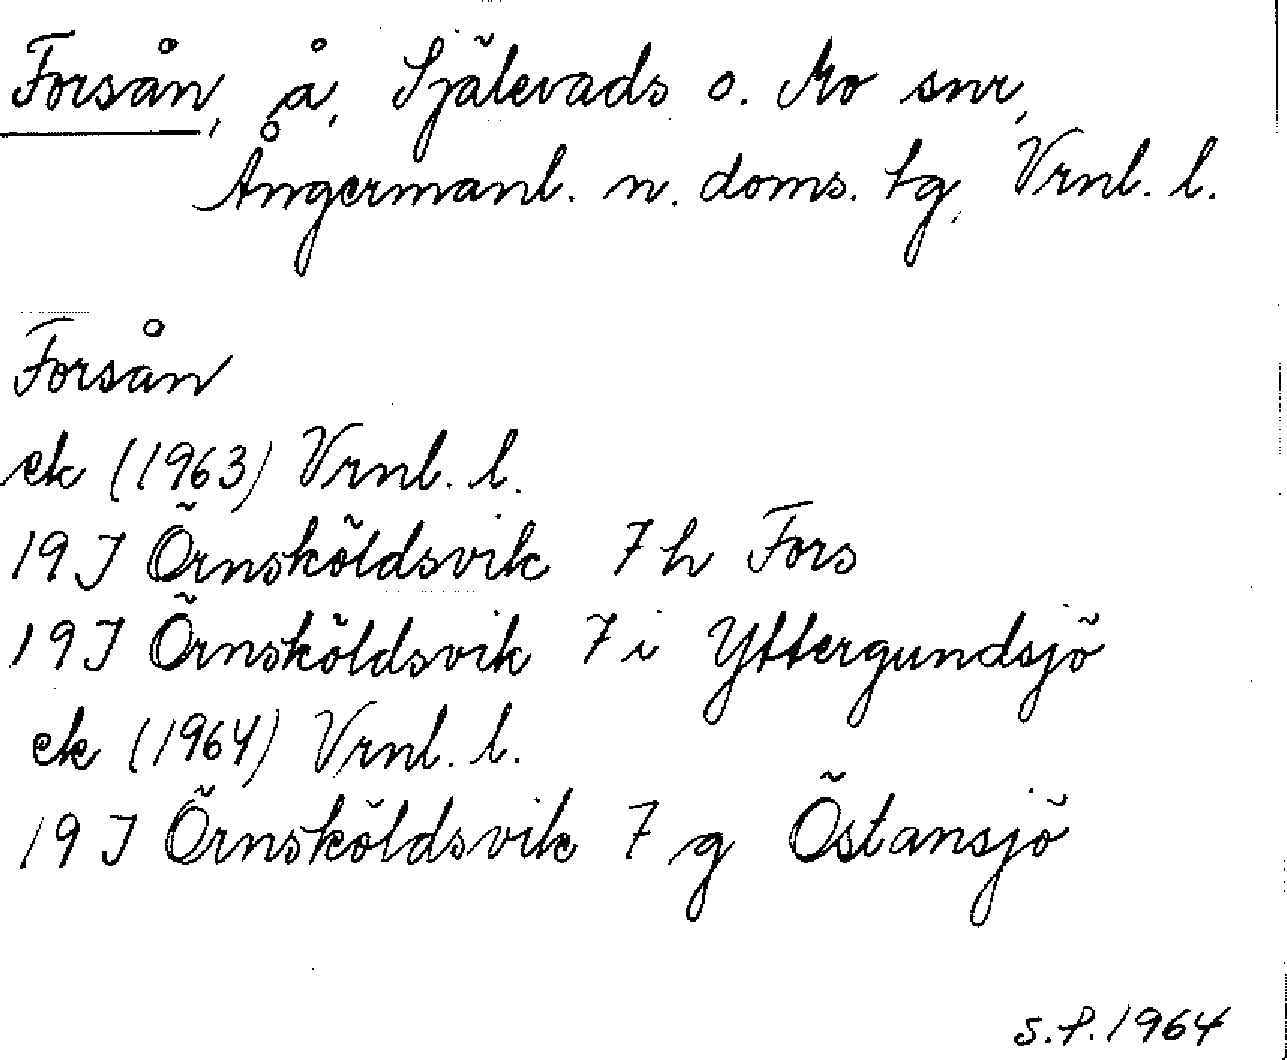 Forsån, å, Själevads o. Mo snr,
Ångermanl. n. doms. tg, Vrnl. l.
Forsån
ek (1963) Vrnl. l.
19 J Örnsköldsvik 7 h Fors
19 J Örnsköldsvik 7 i Yttergundsjö
ek (1964) Vrnl. l.
19 J Örnsköldsvik 7 g Östansjö
S.P. 1964